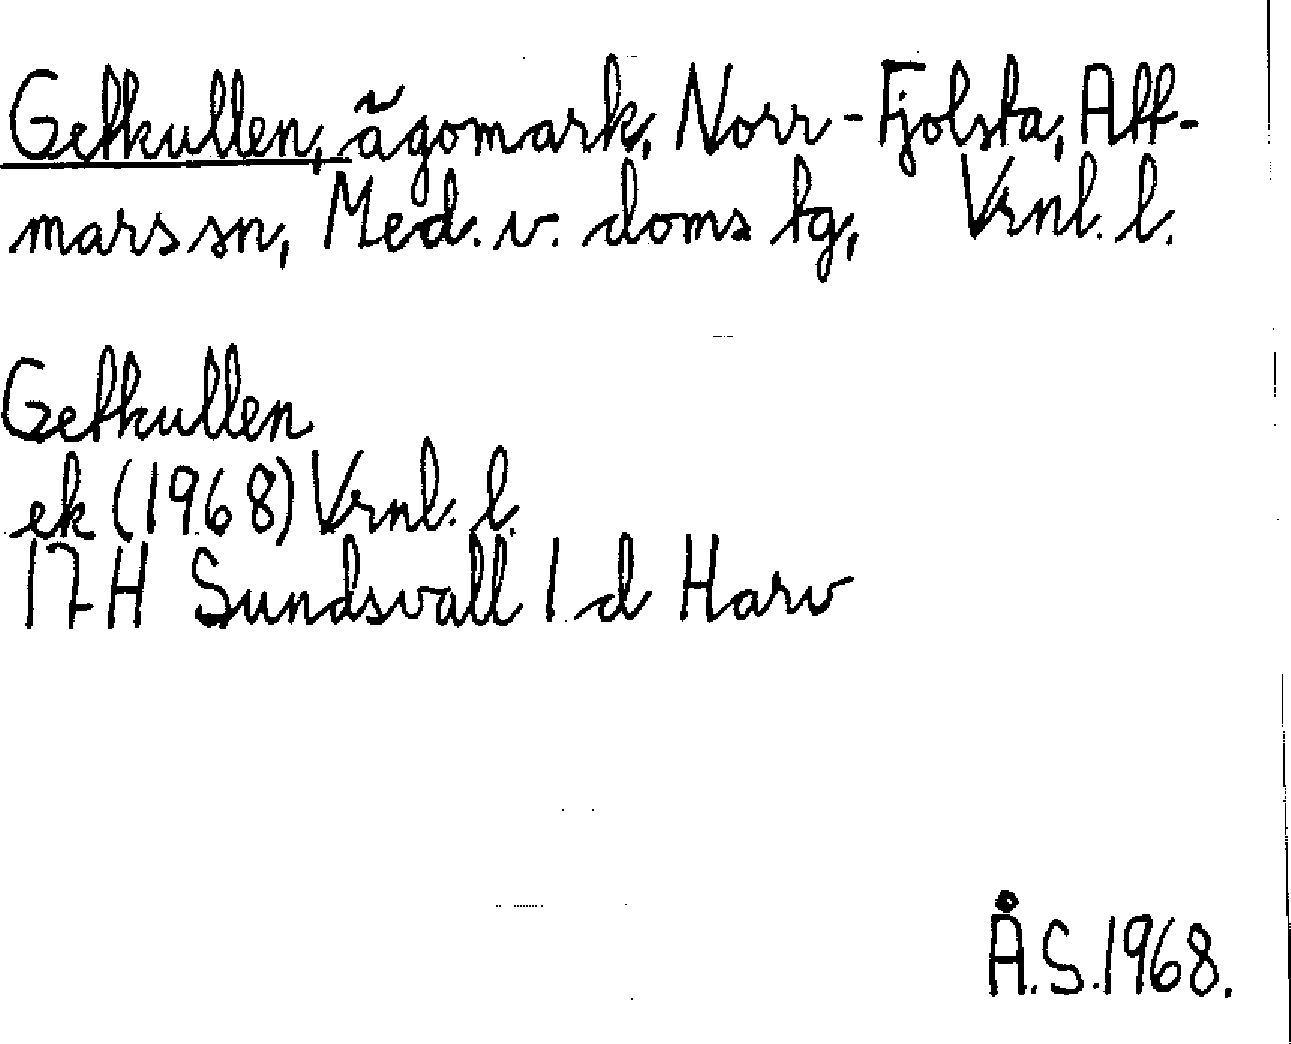 Getkullen, ägomark, Norr-Fjolsta, Att-
mars sn, Med. v. doms tg, Vrnl. l.
Getkullen
ek (1968) Vrnl. l.
17 H Sundsvall 1 d Harv
Å.S. 1968.